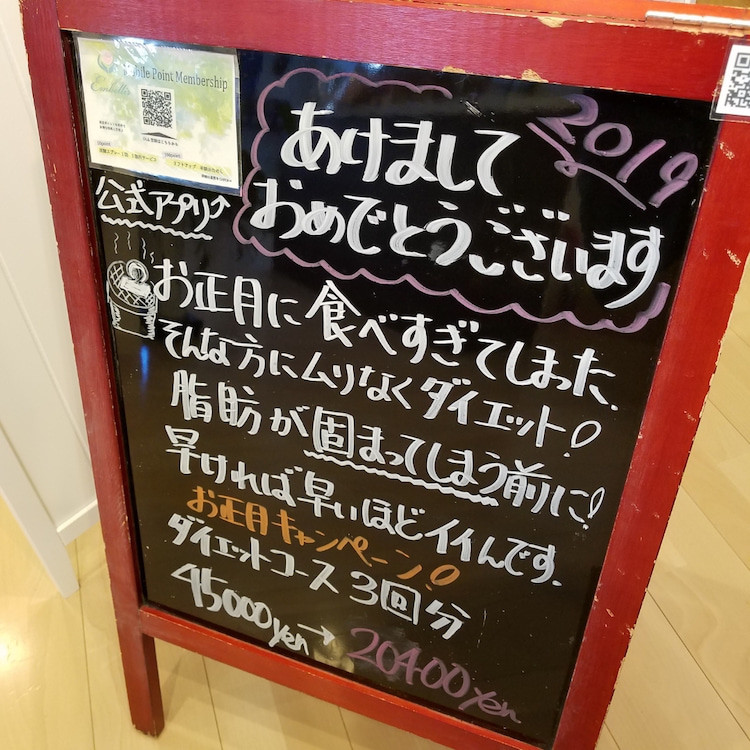 Mobile Point Membership
公式アプリ↑
2019
あけまして
おめでとうございます
お正月に食べすぎてしまった、
そんな方にムリなくダイエット!
脂肪が固まってしまう前に!
早ければ早いほどイイんです。
お正月キャンペーン!
ダイエットコース 3回分
45000yen→20400yen